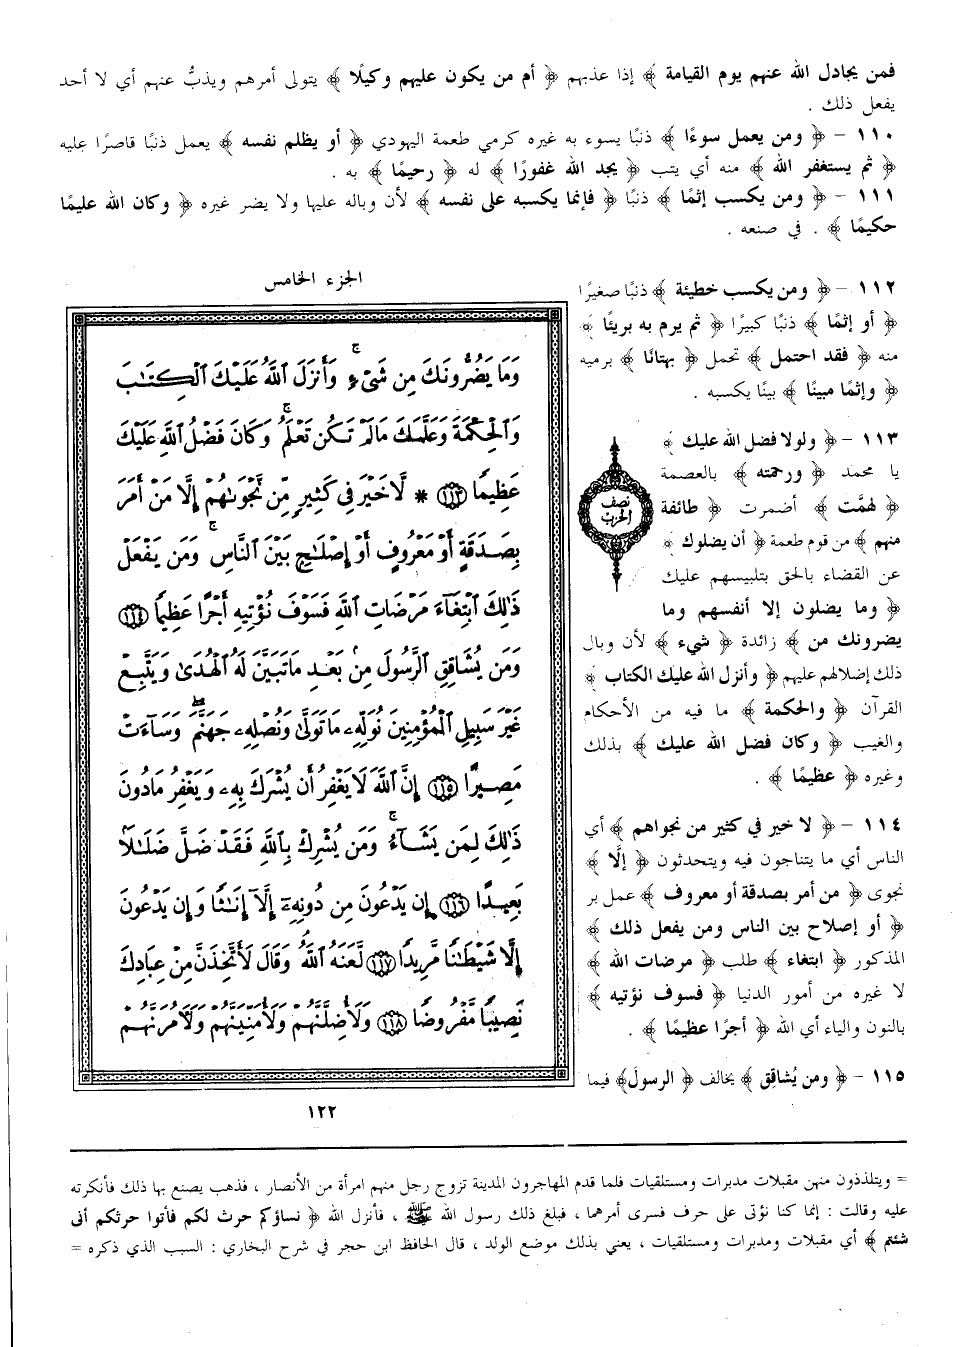 فمن يجادل الله عنهم يوم القيامة ﴾ إذا عذبهم ﴿ أم من يكون عليهم وكيلًا ﴾ يتولى أمرهم ويذبُّ عنهم أي لا أحد
يفعل ذلك .
١١٠ – ﴿ ومن يعمل سوءًا ﴾ ذنبًا يسوء به غيره كرمي طعمة اليهودي ﴿ أو يظلم نفسه ﴾ يعمل ذنبًا قاصرًا عليه
﴿ ثم يستغفر الله ﴾ منه أي يتب ﴿ يجد الله غفورًا ﴾ له ﴿ رحيمًا ﴾ به .
١١١ – ﴿ ومن يكسب إثمًا ﴾ ذنبًا ﴿ فإنما يكسبه على نفسه ﴾ لأن وباله عليها ولا يضر غيره ﴿ وكان الله عليمًا
حكيمًا ﴾ . في صنعه .
١١٢ – ﴿ ومن يكسب خطيئة ﴾ ذنبًا صغيرًا
﴿ أو إثمًا ﴾ ذنبًا كبيرًا ﴿ ثم يرم به بريئًا ﴾
منه ﴿ فقد احتمل ﴾ تحمل ﴿ بهتانًا ﴾ برميه
﴿ وإثمًا مبينًا ﴾ بينًا يكسبه .
١١٣ – ﴿ ولولا فضل الله عليك ﴾
يا محمد ﴿ ورحمته ﴾ بالعصمة
﴿ لهمَّت ﴾ أضمرت ﴿ طائفة
منهم ﴾ من قوم طعمة ﴿ أن يضلوك ﴾
عن القضاء بالحق بتلبيسهم عليك
﴿ وما يضلون إلا أنفسهم وما
يضرونك من ﴾ زائدة ﴿ شيء ﴾ لأن وبال
ذلك إضلالهم عليهم ﴿ وأنزل الله عليك الكتاب ﴾
القرآن ﴿ والحكمة ﴾ ما فيه من الأحكام
والغيب ﴿ وكان فضل الله عليك ﴾ بذلك
وغيره ﴿ عظيمًا ﴾ .
١١٤ – ﴿ لا خير في كثير من نجواهم ﴾ أي
الناس أي ما يتناجون فيه ويتحدثون ﴿ إلَّا ﴾
نجوى ﴿ من أمر بصدقة أو معروف ﴾ عمل بر
﴿ أو إصلاح بين الناس ومن يفعل ذلك ﴾
المذكور ﴿ ابتغاء ﴾ طلب ﴿ مرضات الله ﴾
لا غيره من أمور الدنيا ﴿ فسوف نؤتيه ﴾
بالنون والياء أي الله ﴿ أجرًا عظيمًا ﴾ .
١١٥ – ﴿ ومن يُشاقِق ﴾ يخالف ﴿ الرسول﴾ فيما
نصف
الحزب
الجزء الخامس
وَمَا يَضُرُّونَكَ مِن شَىْءٍ ۚ وَأَنزَلَ ٱللَّهُ عَلَيْكَ ٱلْكِتَـٰبَ
وَٱلْحِكْمَةَ وَعَلَّمَكَ مَا لَمْ تَكُن تَعْلَمُ ۚ وَكَانَ فَضْلُ ٱللَّهِ عَلَيْكَ
عَظِيمًا ١١٣ * لَّا خَيْرَ فِى كَثِيرٍ مِّن نَّجْوَىٰهُمْ إِلَّا مَنْ أَمَرَ
بِصَدَقَةٍ أَوْ مَعْرُوفٍ أَوْ إِصْلَـٰحٍ بَيْنَ ٱلنَّاسِ ۚ وَمَن يَفْعَلْ
ذَٰلِكَ ٱبْتِغَآءَ مَرْضَاتِ ٱللَّهِ فَسَوْفَ نُؤْتِيهِ أَجْرًا عَظِيمًا ١١٤
وَمَن يُشَاقِقِ ٱلرَّسُولَ مِنۢ بَعْدِ مَا تَبَيَّنَ لَهُ ٱلْهُدَىٰ وَيَتَّبِعْ
غَيْرَ سَبِيلِ ٱلْمُؤْمِنِينَ نُوَلِّهِۦ مَا تَوَلَّىٰ وَنُصْلِهِۦ جَهَنَّمَ ۖ وَسَآءَتْ
مَصِيرًا ١١٥ إِنَّ ٱللَّهَ لَا يَغْفِرُ أَن يُشْرَكَ بِهِۦ وَيَغْفِرُ مَا دُونَ
ذَٰلِكَ لِمَن يَشَآءُ ۚ وَمَن يُشْرِكْ بِٱللَّهِ فَقَدْ ضَلَّ ضَلَـٰلًۢا
بَعِيدًا ١١٦ إِن يَدْعُونَ مِن دُونِهِۦٓ إِلَّآ إِنَـٰثًا وَإِن يَدْعُونَ
إِلَّا شَيْطَـٰنًا مَّرِيدًا ١١٧ لَّعَنَهُ ٱللَّهُ ۘ وَقَالَ لَأَتَّخِذَنَّ مِنْ عِبَادِكَ
نَصِيبًا مَّفْرُوضًا ١١٨ وَلَأُضِلَّنَّهُمْ وَلَأُمَنِّيَنَّهُمْ وَلَـَٔامُرَنَّهُمْ
١٢٢
= ويتلذذون منهن مقبلات مدبرات ومستلقيات فلما قدم المهاجرون المدينة تزوج رجل منهم امرأة من الأنصار ، فذهب يصنع بها ذلك فأنكرته
عليه وقالت : إنما كنا نؤتى على حرف فسرى أمرهما ، فبلغ ذلك رسول الله ﷺ ، فأنزل الله ﴿ نساؤكم حرث لكم فأتوا حرثكم أنى
شئتم ﴾ أي مقبلات ومدبرات ومستلقيات ، يعني بذلك موضع الولد ، قال الحافظ ابن حجر في شرح البخاري : السبب الذي ذكره =